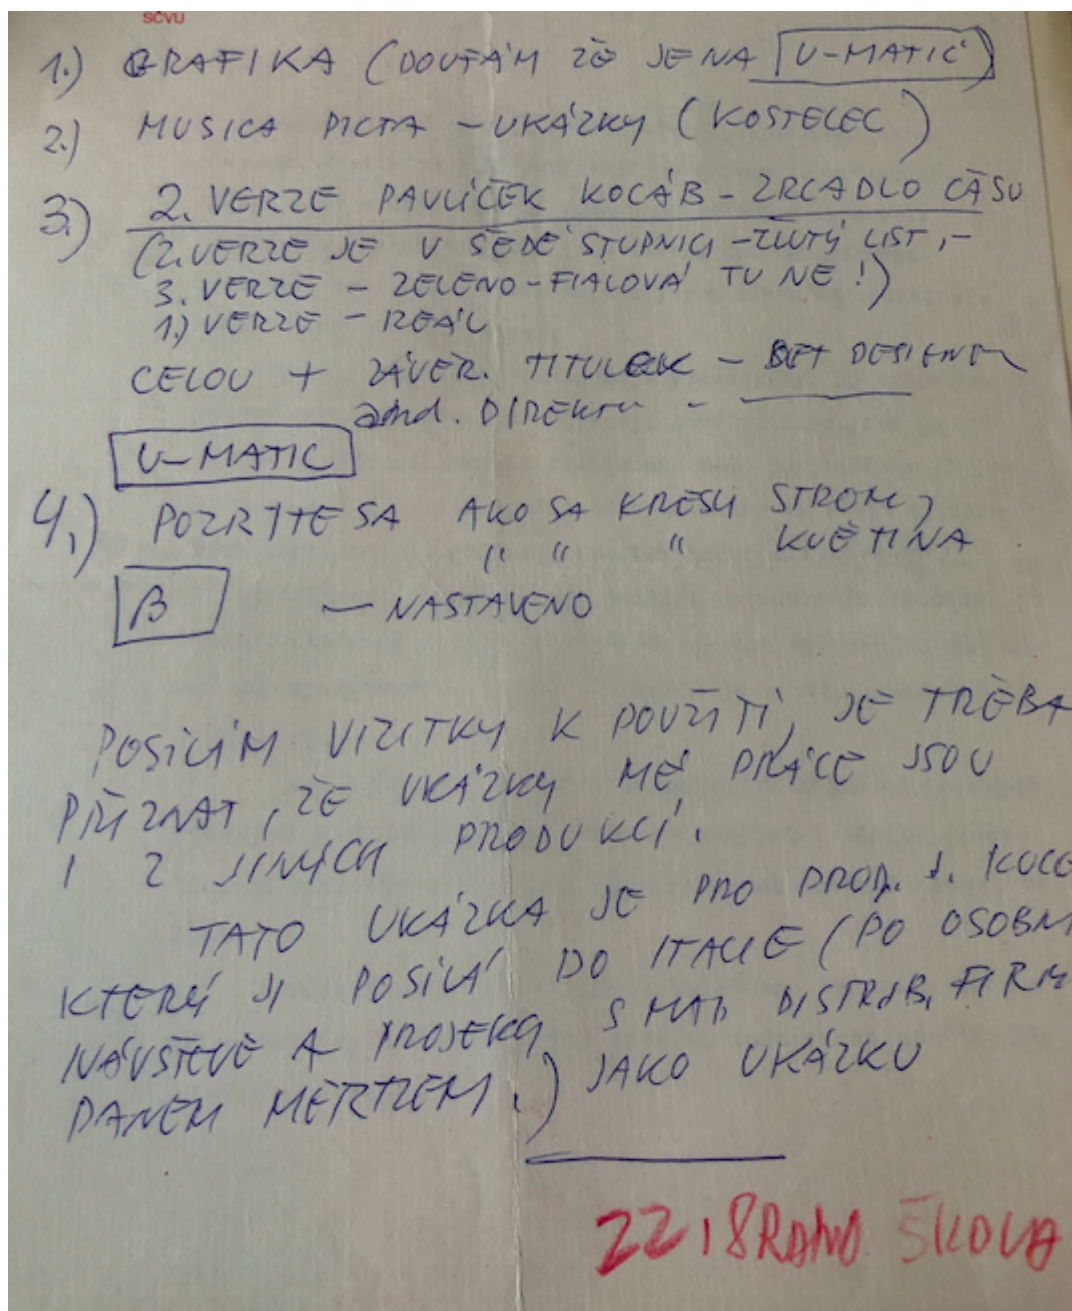 SČVU
1.) GRAFIKA (DOUFÁM ŽE JE NA U-MATIC)
2.) MUSICA PICTA - UKÁZKY (KOSTELEC)
3.) 2. VERZE PAVLÍČEK KOCÁB - ZRCADLO ČASU
(2. VERZE JE V ŠEDÉ STUPNICI - ŽLUTÝ LIST, -
3. VERZE - ZELENO-FIALOVÁ TU NE!)
1.) VERZE - REÁL
CELOU + ZÁVĚR. TITULEK -
U-MATIC
4.) POZRITE SA AKO SA KRESLÍ STROM,
" " " KVĚTINA
B - NASTAVENO
POSÍLÁM VIZITKY K POUŽITÍ, JE TŘEBA
PŘIZNAT, ŽE UKÁZKY MÉ PRÁCE JSOU
I Z JINÝCH PRODUKCÍ.
TATO UKÁZKA JE PRO PROD. J.
KTERÝ JI POSÍLÁ DO ITALIE (PO OSOBNÍ
NÁVŠTĚVĚ A PROJEKCI S MAJ. DISTRIB. FIRM
PANEM MERTZEM.) JAKO UKÁZKU
22.18 RANO ŠKODA